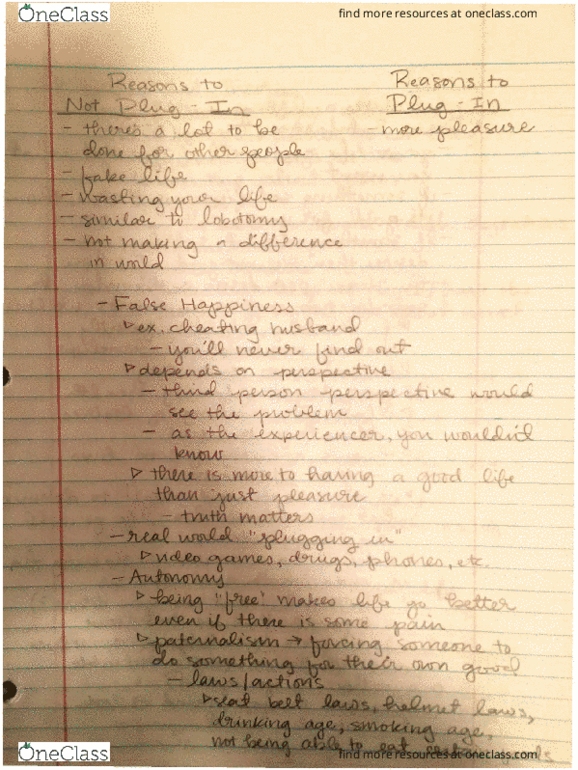 OneClass
find more resources at oneclass.com
Reasons to
Not Plug-In
- there's a lot to be
done for other people
- fake life
- wasting your life
- similar to lobotomy
- not making a difference
in world
Reasons to
Plug-In
- more pleasure
- False Happiness
▹ ex. cheating husband
- you'll never find out
▹ depends on perspective
- third person perspective would
see the problem
- as the experiencer, you wouldn't
know
▹ there is more to having a good life
than just pleasure
- truth matters
- real world "plugging in"
▹ video games, drugs, phones, etc.
- Autonomy
▹ being "free" makes life go better
even if there is some pain
▹ paternalism → forcing someone to
do something for their own good
- laws/actions
▹ seat belt laws, helmet laws,
drinking age, smoking age,
not being able to eat
OneClass
find more resources at oneclass.com